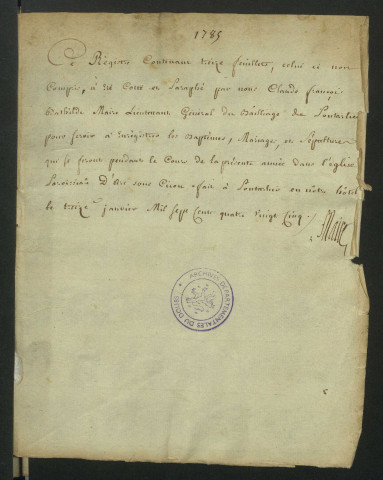 1785
Ce Régistre Contenant treize feuillets, celui ci non
Compris, à été Coté et Paraphé par nous Claude françois
Maire Lieutenant Général du Bailliage de Pontarlier
pour servir à Enrégistrer les Baptêmes, Mariage, et Sépulture
qui se feront pendant le Cour de la présente année dans l'église
D'Arc sous Cicon fait à Pontarlier en nôtre hôtel
le treize janvier Mil Sept Cent quatre Vingt Cinq ./.
Maire
ARCHIVES DÉPARTEMENTALES DU DOUBS